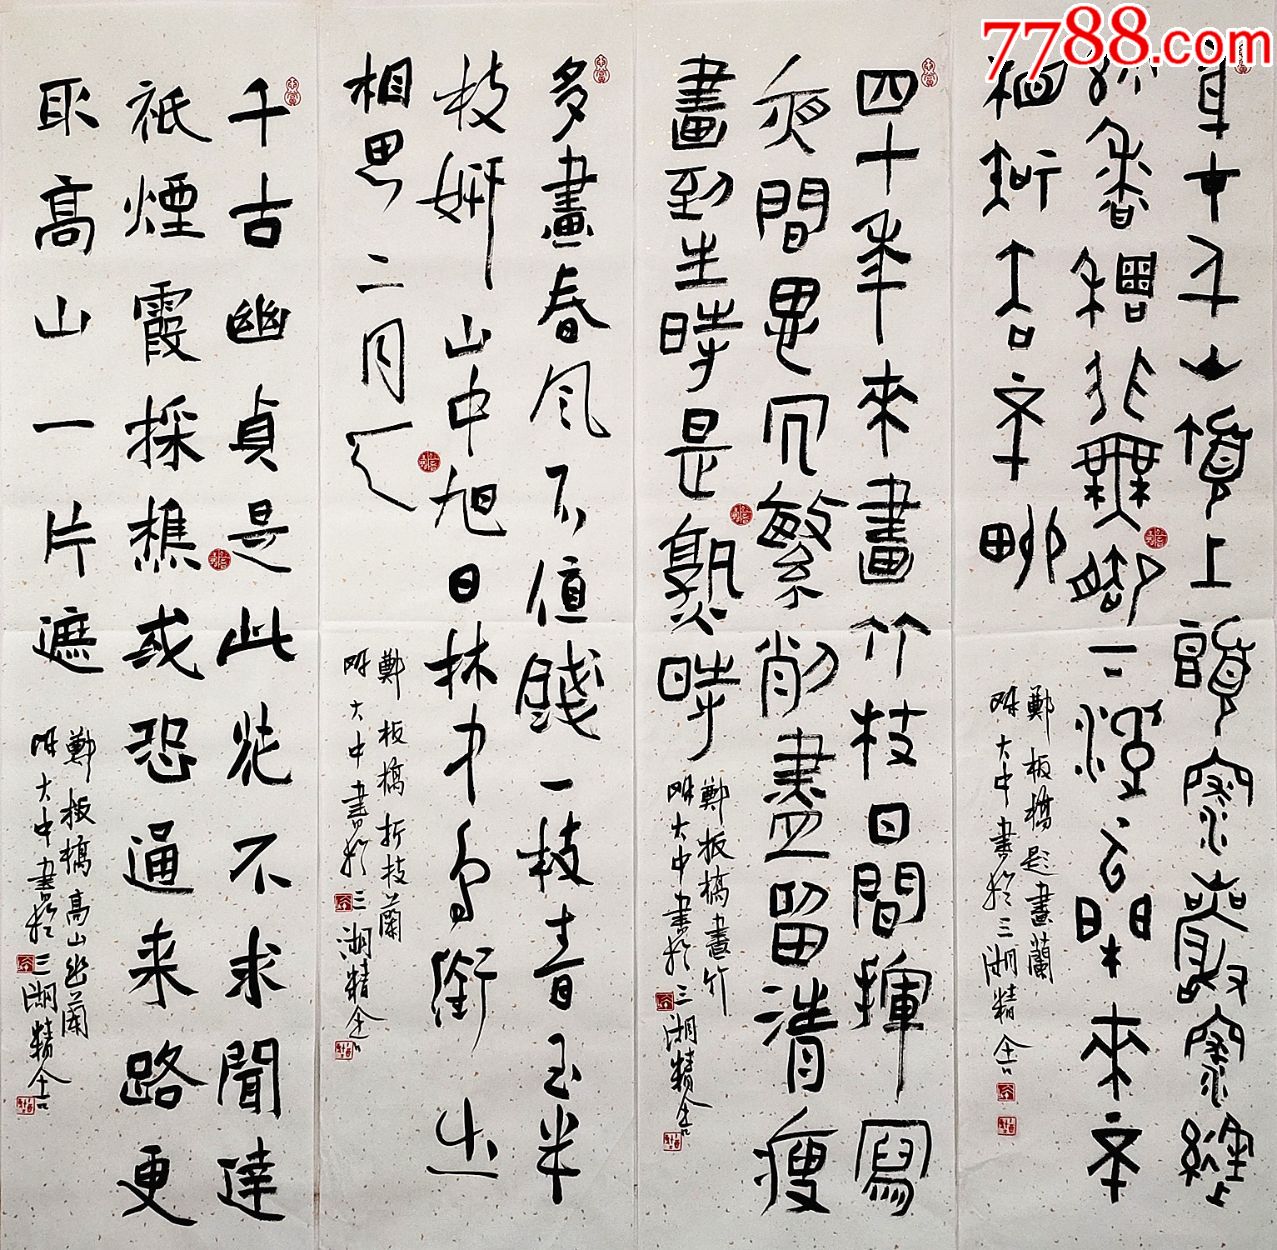 7788.com
身在千山頂上頭深巖深縫
妙香稠非無腳下浮雲鬧來不
相知去不留
鄭板橋題畫蘭
大中書於三湖精舍
四十年來畫竹枝日間揮寫
夜間思冗繁削盡留清瘦
畫到生時是熟時
鄭板橋畫竹
大中書於三湖精舍
多畫春風不值錢一枝青玉半
枝妍山中旭日林中鳥銜出
相思二月天
鄭板橋折枝蘭
大中書於三湖精舍
千古幽貞是此花不求聞達
祇煙霞採樵或恐通來路更
取高山一片遮
鄭板橋高山幽蘭
大中書於三湖精舍